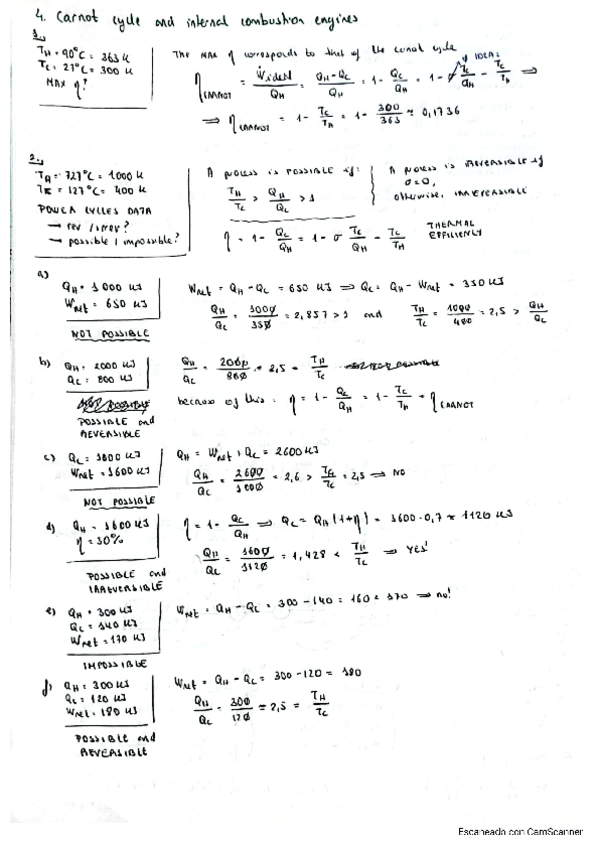 4. Carnot cycle and internal combustion engines
1.
TH = 90°C = 363 K
TC = 27°C = 300 K
MAX η?
The MAX η corresponds to that of the carnot cycle
IDEAL
ηCARNOT = Ẇideal/QH = (QH - QC)/QH = 1 - QC/QH = 1 - σ TC/QH - TC/TH ⟹
⟹ ηCARNOT = 1 - TC/TH = 1 - 300/363 ≈ 0,1736
2.
TH = 727°C = 1000 K
TC = 127°C = 400 K
POWER CYCLES DATA
→ rev / irrev?
→ possible / impossible?
A PROCESS IS POSSIBLE if:
TH/TC > QH/QC > 1
A PROCESS IS REVERSIBLE if
σ = 0,
otherwise, IRREVERSIBLE
η = 1 - QC/QH = 1 - σ TC/QH - TC/TH
THERMAL
EFFICIENCY
a)
QH = 1000 KJ
Wnet = 650 KJ
NOT POSSIBLE
Wnet = QH - QC = 650 KJ ⟹ QC = QH - Wnet = 350 KJ
QH/QC = 1000/350 = 2,857 > 1 and TH/TC = 1000/400 = 2,5 > QH/QC
b) QH = 2000 KJ
QC = 800 KJ
POSSIBLE and
REVERSIBLE
QH/QC = 2000/800 = 2,5 = TH/TC
because of this: η = 1 - QC/QH = 1 - TC/TH = ηCARNOT
c) QC = 1000 KJ
Wnet = 1600 KJ
NOT POSSIBLE
QH = Wnet + QC = 2600 KJ
QH/QC = 2600/1000 = 2,6 > TH/TC = 2,5 ⟹ NO
d) QH = 1600 KJ
η = 30%
POSSIBLE and
IRREVERSIBLE
η = 1 - QC/QH ⟹ QC = QH (1+η) = 1600·0,7 = 1120 KJ
QH/QC = 1600/1120 = 1,428 < TH/TC ⟹ YES!
e) QH = 300 KJ
QC = 140 KJ
Wnet = 170 KJ
IMPOSSIBLE
Wnet = QH - QC = 300 - 140 = 160 ≠ 170 ⟹ no!
f) QH = 300 KJ
QC = 120 KJ
Wnet = 180 KJ
POSSIBLE and
REVERSIBLE
Wnet = QH - QC = 300 - 120 = 180
QH/QC = 300/120 = 2,5 = TH/TC
Escaneado con CamScanner